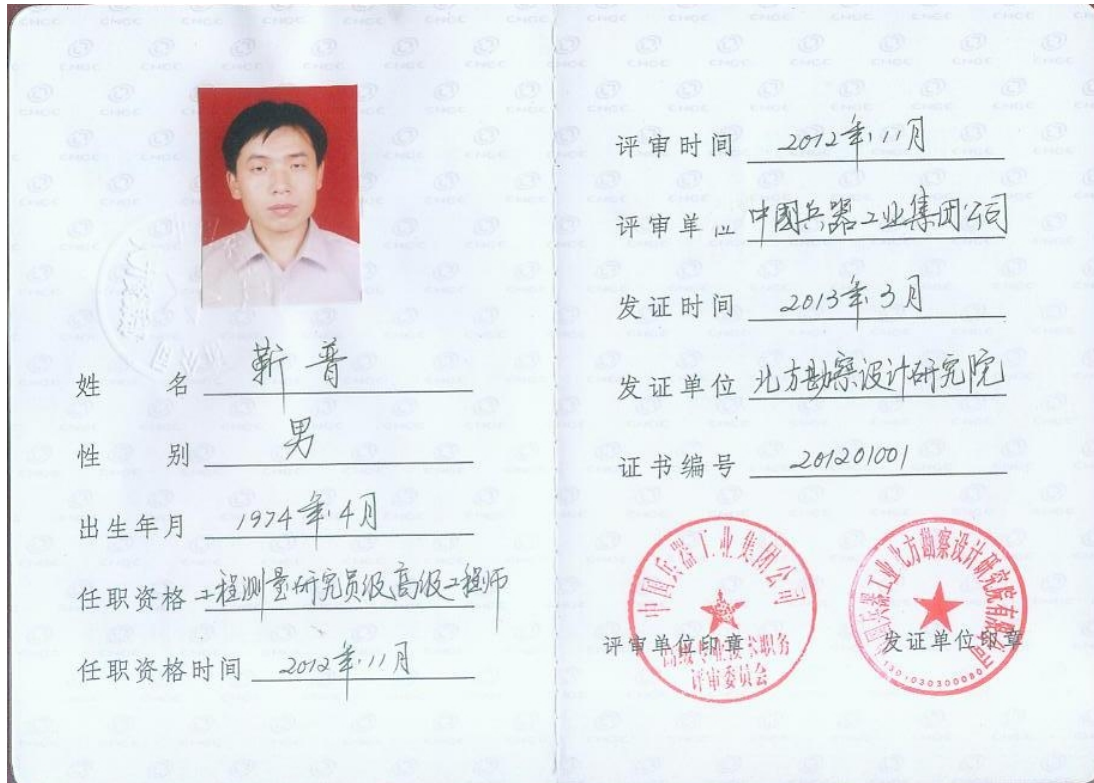 姓名 靳普
性别 男
出生年月 1974年4月
任职资格 工程测量研究员级高级工程师
任职资格时间 2012年11月
评审时间 2012年11月
评审单位 中國兵器工业集团公司
发证时间 2013年3月
发证单位 北方勘察设计研究院
证书编号 201201001
中国兵器工业集团公司
高级专业技术职务
评审委员会
评审单位印章
中国兵器工业北方勘察设计研究院有限公司
发证单位印章
CNGC